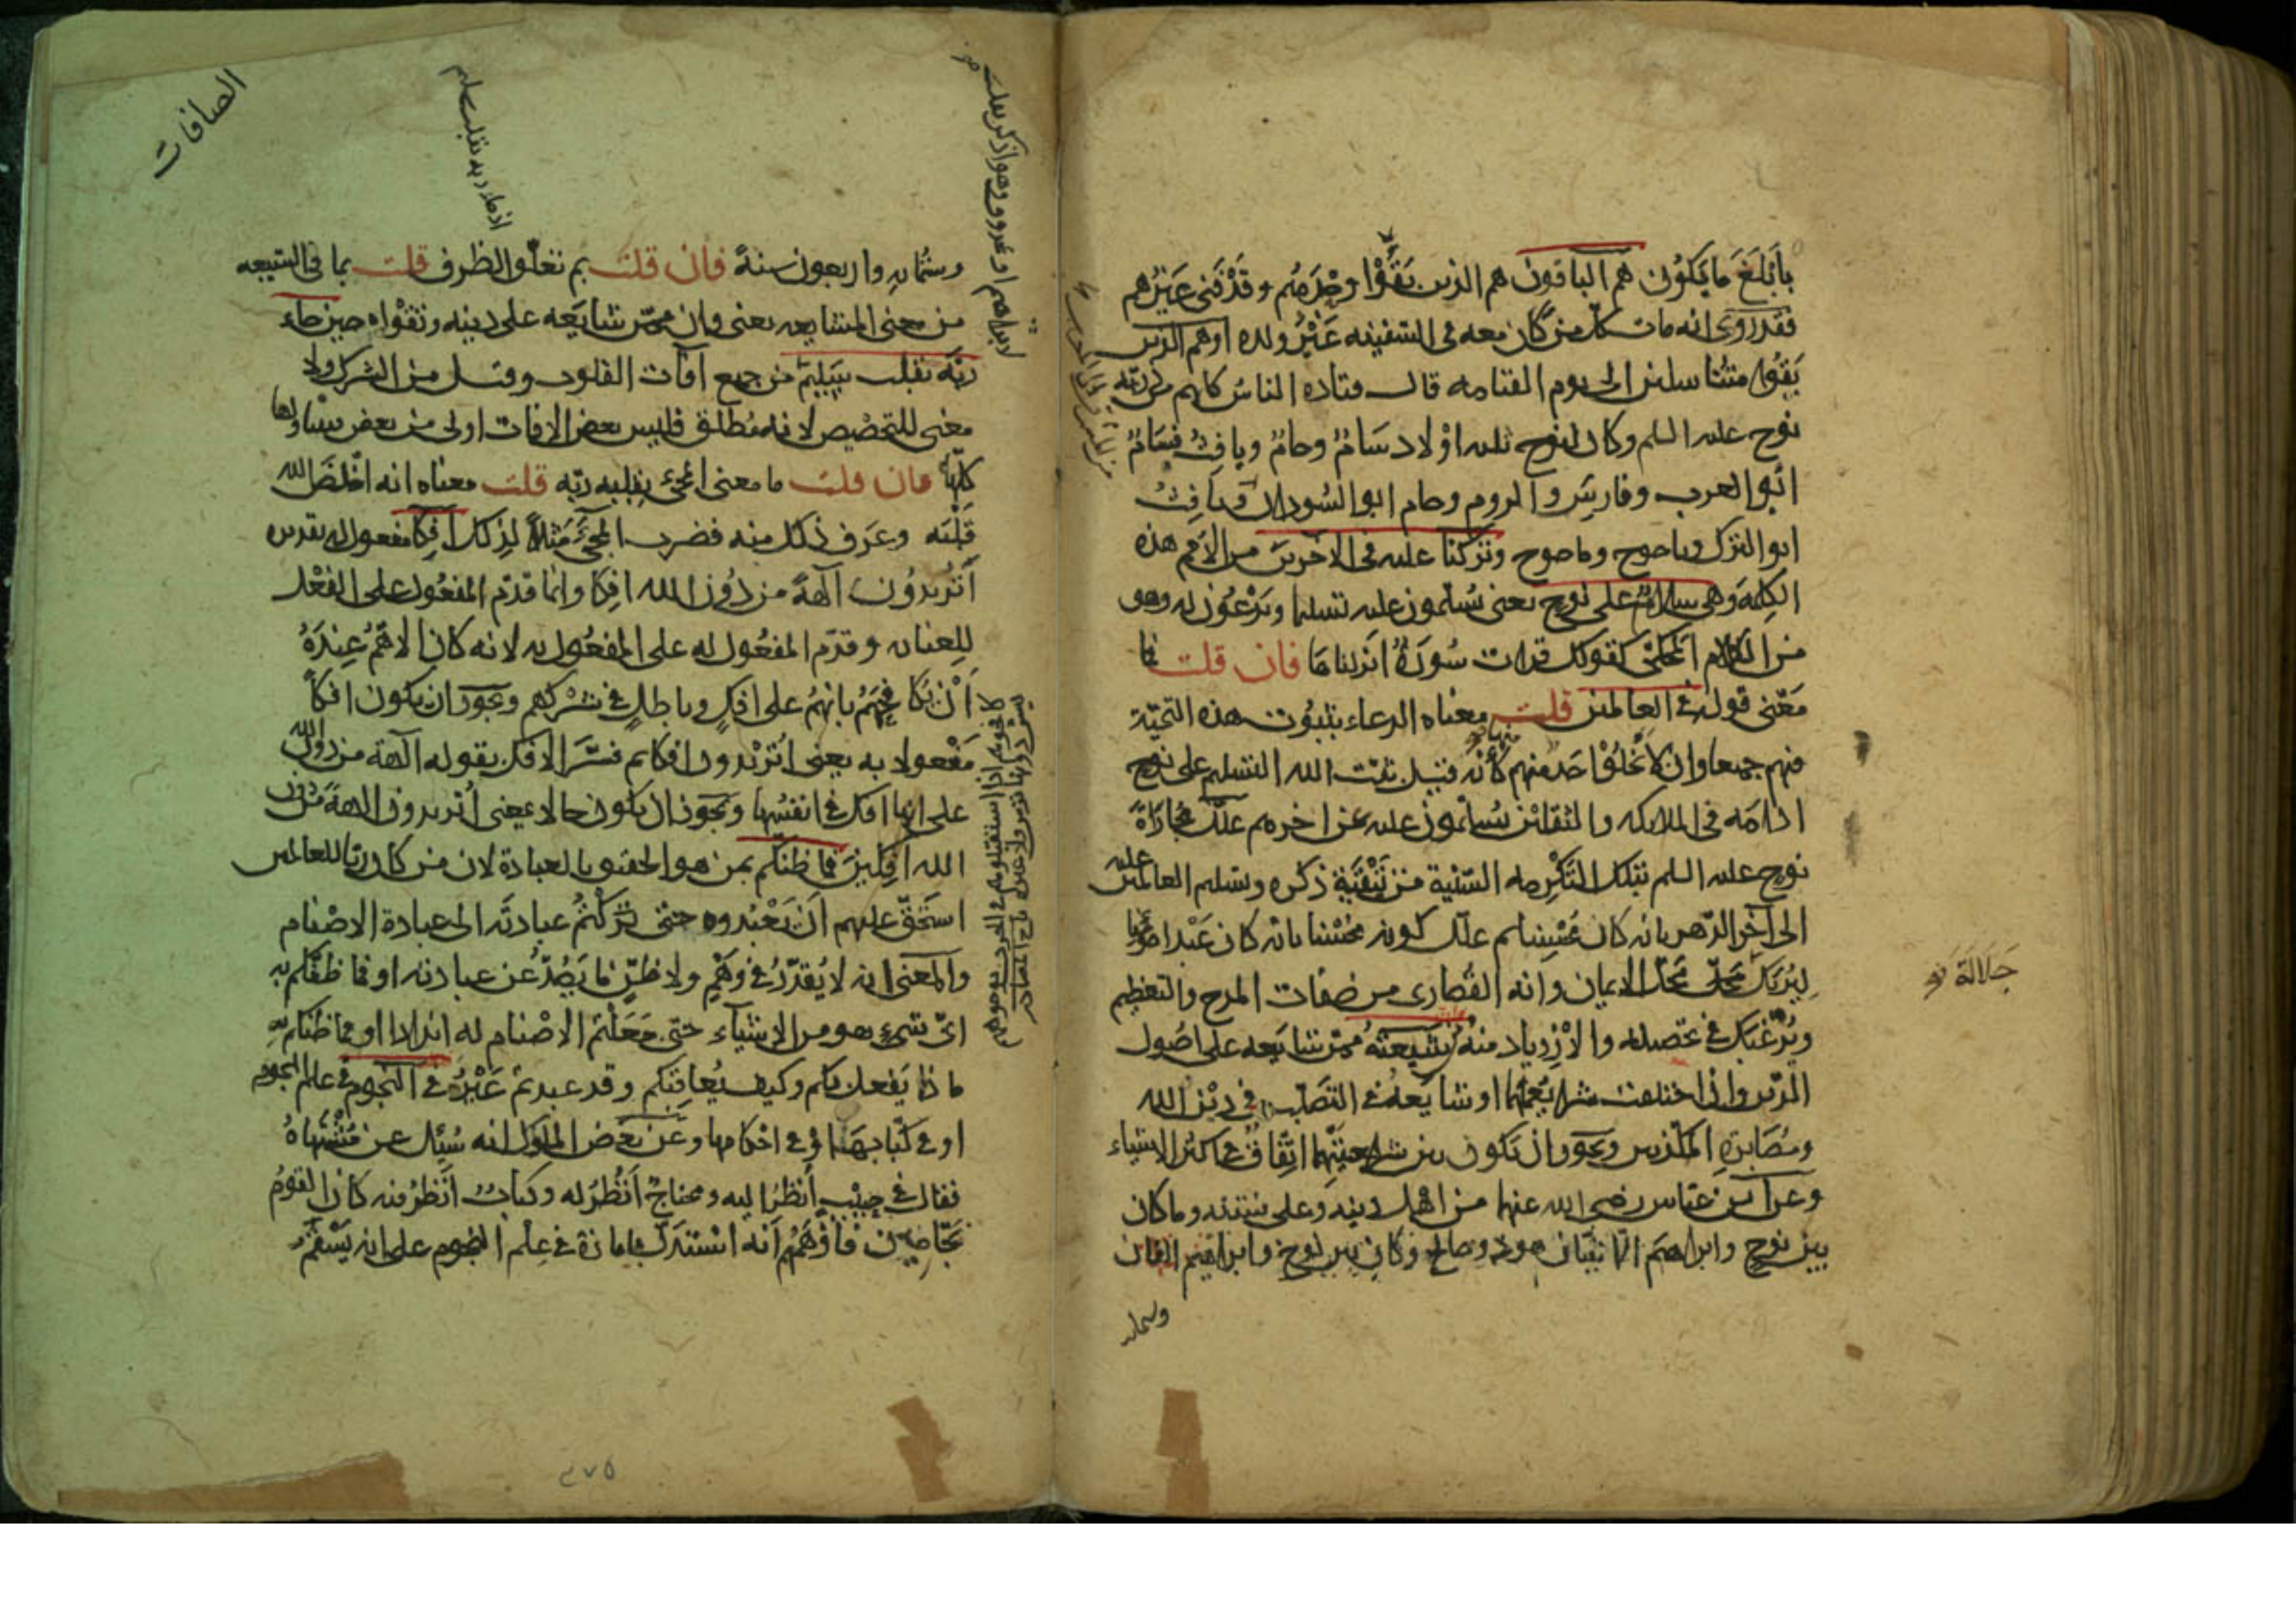 بأبلغ ما يكون هم الباقون هم الذين بقوا وحدهم وقد فنى غيرهم
فقد روى انه مات كل من كان معه فى السفينه غير ولده اوهم الذين
بقوا متناسلين الى يوم القيامه قال قتاده الناس كلهم من ذريه
نوح عليه السلم وكان لنوح ثلثه اولاد سام وحام ويافث فسام
ابو العرب وفارس والروم وحام ابو السودان ويافث
ابو الترك وياجوج وماجوج وتركنا عليه فى الاخرين من الامم هذه
الكلمه وهى سلام على نوح يعنى يسلمون عليه تسليما ويدعون له وهو
من الكلام المحكى كقولك قرات سورة انزلناها فان قلت فما
معنى قوله فى العالمين قلت معناه الدعاء بثبوت هذه التحية
فيهم جميعا وان لا يخلو احد منهم منها كأنه قيل ثبت الله التسليم على نوح
ادامه فى الملايكه والثقلين يسلمون عليه عن اخرهم علل مجازاة
نوح عليه السلم بتلك التكرمه السنية من تبقية ذكره وتسليم العالمين عليه
الى آخر الدهر بانه كان محسنا ثم علل كونه محسنا بانه كان عبدا مؤمنا
ليريك جلالة محل الايمان وانه القصارى من صفات المدح والتعظيم
ويرغبك فى تحصيله والازدياد منه من شيعته ممن شايعه على اصول
الدين وان اختلفت شرايعهما او شايعه فى التصلب فى دين الله
ومصابرة المكذبين ويجوز ان يكون بين شريعتيهما اتفاق فى اكثر الاشياء
وعن ابن عباس رضى الله عنهما من اهل دينه وعلى سنته وما كان
بين نوح وابراهيم الا نبيان هود وصالح وكان بين نوح وابراهيم الفان
وستمايه
جلالة
الصافات
وستمايه واربعون سنة فان قلت بم تعلق الظرف قلت بما فى الشيعه
من معنى المشايعه يعنى وان ممن شايعه على دينه وتقواه حين جاء
ربه بقلب سليم من جميع آفات القلوب وقيل من الشرك ولا
معنى للتخصيص لانه مطلق فليس بعض الافات اولى من بعض يتناولها
كلها فان قلت ما معنى المجئ بقلبه ربه قلت معناه انه اخلص لله
قلبه وعرف ذلك منه فضرب المجئ مثلا لذلك أفكا مفعول له تقديره
أتريدون آلهة من دون الله افكا وانما قدم المفعول على الفعل
للعنايه وقدم المفعول له على المفعول به لانه كان الاهم عنده
أن يكافحهم بانهم على افك وباطل فى شركهم ويجوز ان يكون افكا
مفعولا به يعنى اتريدون افكا ثم فسر الافك بقوله آلهة من دون الله
على انها افك فى انفسها ويجوز ان يكون حالا يعنى أتريدون الهة من دون
الله افكين فما ظنكم بمن هو الحقيق بالعبادة لان من كان ربا للعالمين
استحق عليهم ان يعبدوه حتى تركتم عبادته الى عبادة الاصنام
والمعنى انه لا يقدر فى وهم ولا ظن ما يصد عن عبادته او فما ظنكم به
اى شىء هو من الاشياء حتى جعلتم الاصنام له اندادا او فما ظنكم به
ماذا يفعل بكم وكيف يعاقبكم وقد عبدتم غيره فى النجوم فى علم النجوم
او فى كتابها او فى احكامها وعن بعض الملوك انه سئل عن مشتهاه
فقال فى حبيب أنظر اليه ومحتاج أنظر له وكتاب أنظر فيه كان القوم
نجامين فأوهمهم أنه استدل بامارة فى علم النجوم على انه يسقم
٣٧٥